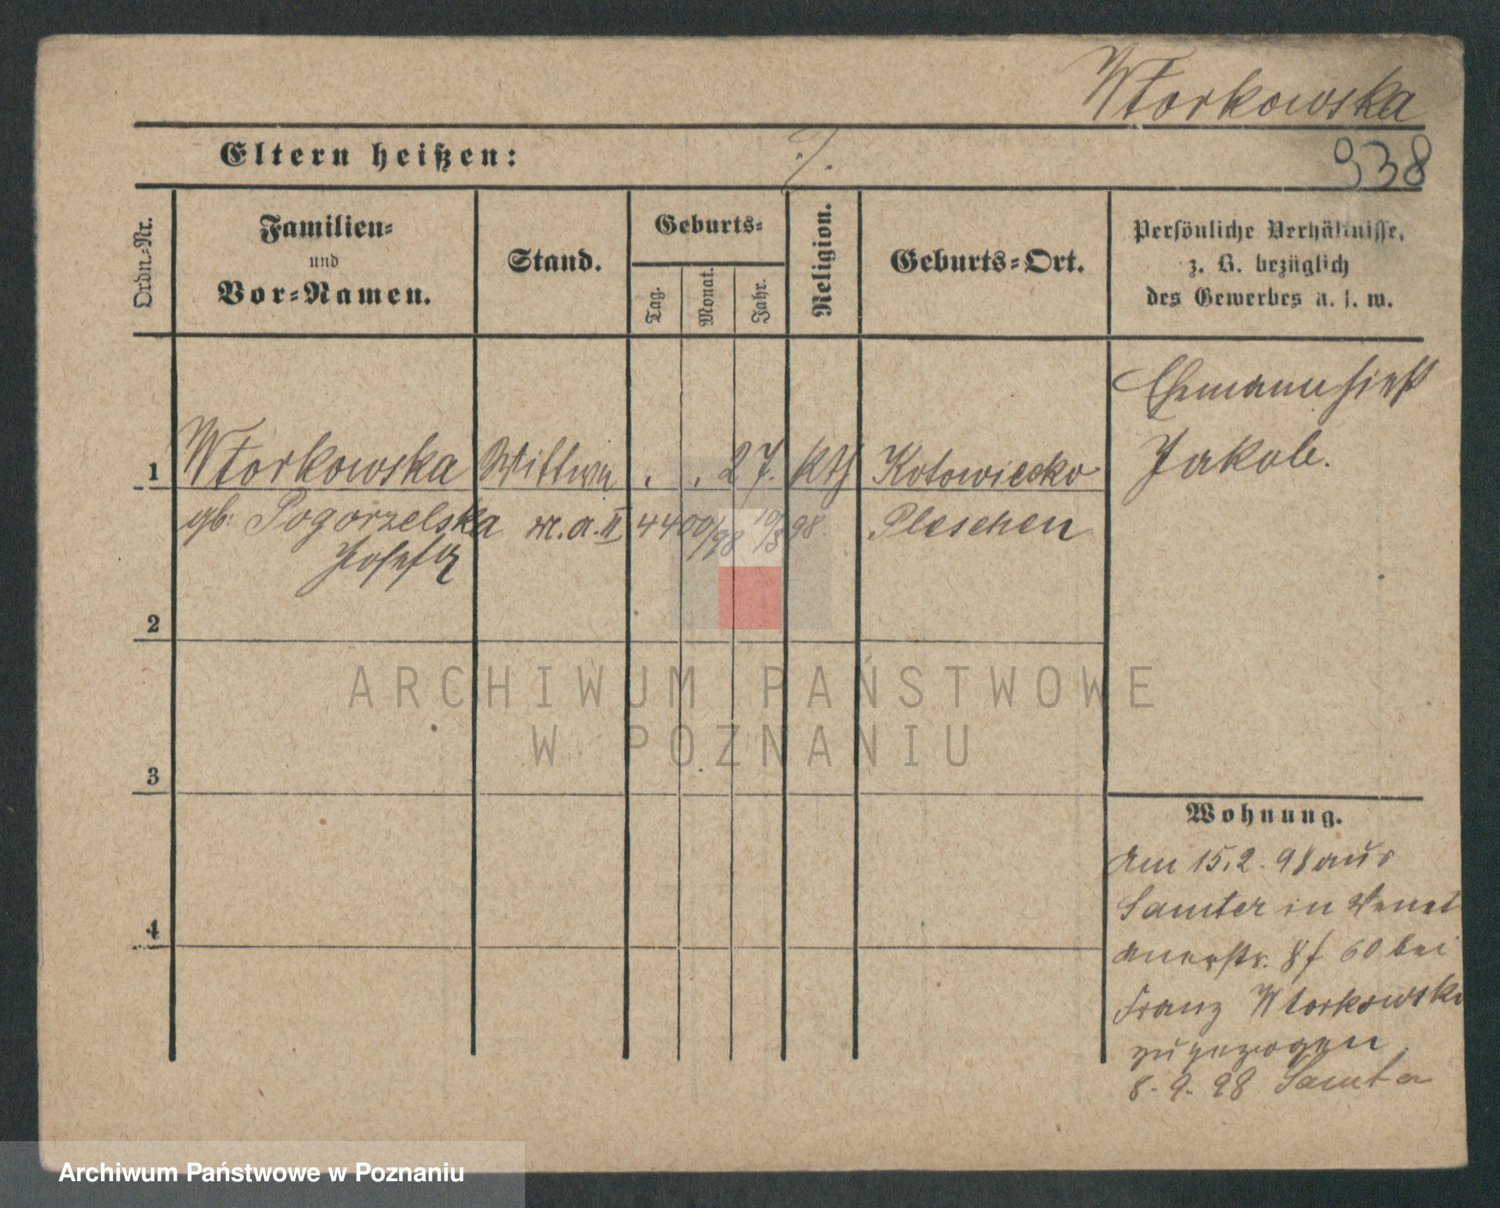 Wtorkowska
Eltern heißen: ·/.
938
Ordn.-Nr.
Familien-
und
Vor-Namen.
Stand.
Geburts-
Tag.
Monat.
Jahr.
Religion.
Geburts-Ort.
Persönliche Verhältnisse,
z. B. bezüglich
des Gewerbes u. s. w.
1 Wtorkowska Wittwe . . 27. kth Kotowiecko
gb. Pogorzelska m. a. II 98. Pleschen
Josefa
Ehemann hieß
Jakob.
2
3
4
Wohnung.
Am 15.2.98 aus
Samter in
8 60 bei
Franz Wtorkowski
zugezogen
8.9.98 Samter
ARCHIWUM PAŃSTWOWE
W POZNANIU
Archiwum Państwowe w Poznaniu